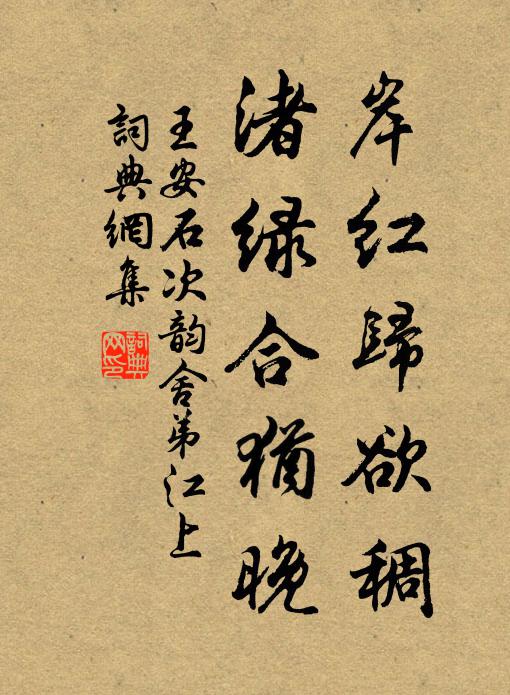 岸红歸欲稠
渚绿合猶晚
王安石次韵舍弟江上
詞典網集
詞典网印